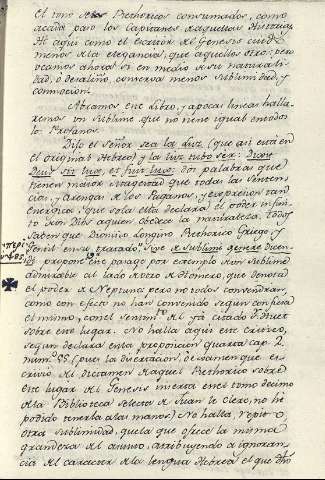 el tono de los Rethoricos consumados, como
acada paso los Capitanes de aquellas Historias.
He aqui como el escritor del Genesis cuidó
menos de la elegancia, que aquellos otros; pero
vcamos ahora si en medio de su naturali-
dad, o desaliño, conserva menos Sublimidad, y
conmocion.
Abramos este Libro, y apocas lineas halla-
remos un Sublime que no tiene igual en todos
los Profanos.
Dijo el Señor sea la Luz (que asi está en
el original Hebreo) y la luz tubo ser: Dixit
Deus sit lux, et fuit lux: dos palabras que
tienen maior Magestad que todas las Senten-
cias, y Arengas de los Paganos, y expresion tan
energica, que sola esta declara el poder infini-
to de un Dios aquien obedece la naturaleza. Todos
Saben que Dionisio Longino Rethorico Griego, y
Gentil en su tratado de sublimi genere dicen-
di propone este pasage por exemplo de un Sublime
admirable al lado de otro de Homero, que denota
el poder de Neptuno pero no todos convendrán,
como con efecto no han convenido segun confiesa
el mismo, con el sentimto. del ya citado Dr. Huet
sobre este lugar. No halla aqui este critico,
segun declara en la proposicion quarta cap. 2.
num.º 53. (pues la disertacion, ó examen que es-
crivió del dictamen de aquel Rethorico sobre
este lugar del Genesis inserta en el tomo decimo
de la Biblioteca selecta de Juan le Clerc, no hé
podido tenerla alas manos) No halla, repito,
otra sublimidad, que la que ofrece la misma
grandeza del asunto, atribuyendo a ignoran-
cia del caracter de la lengua Hebrea el que dho